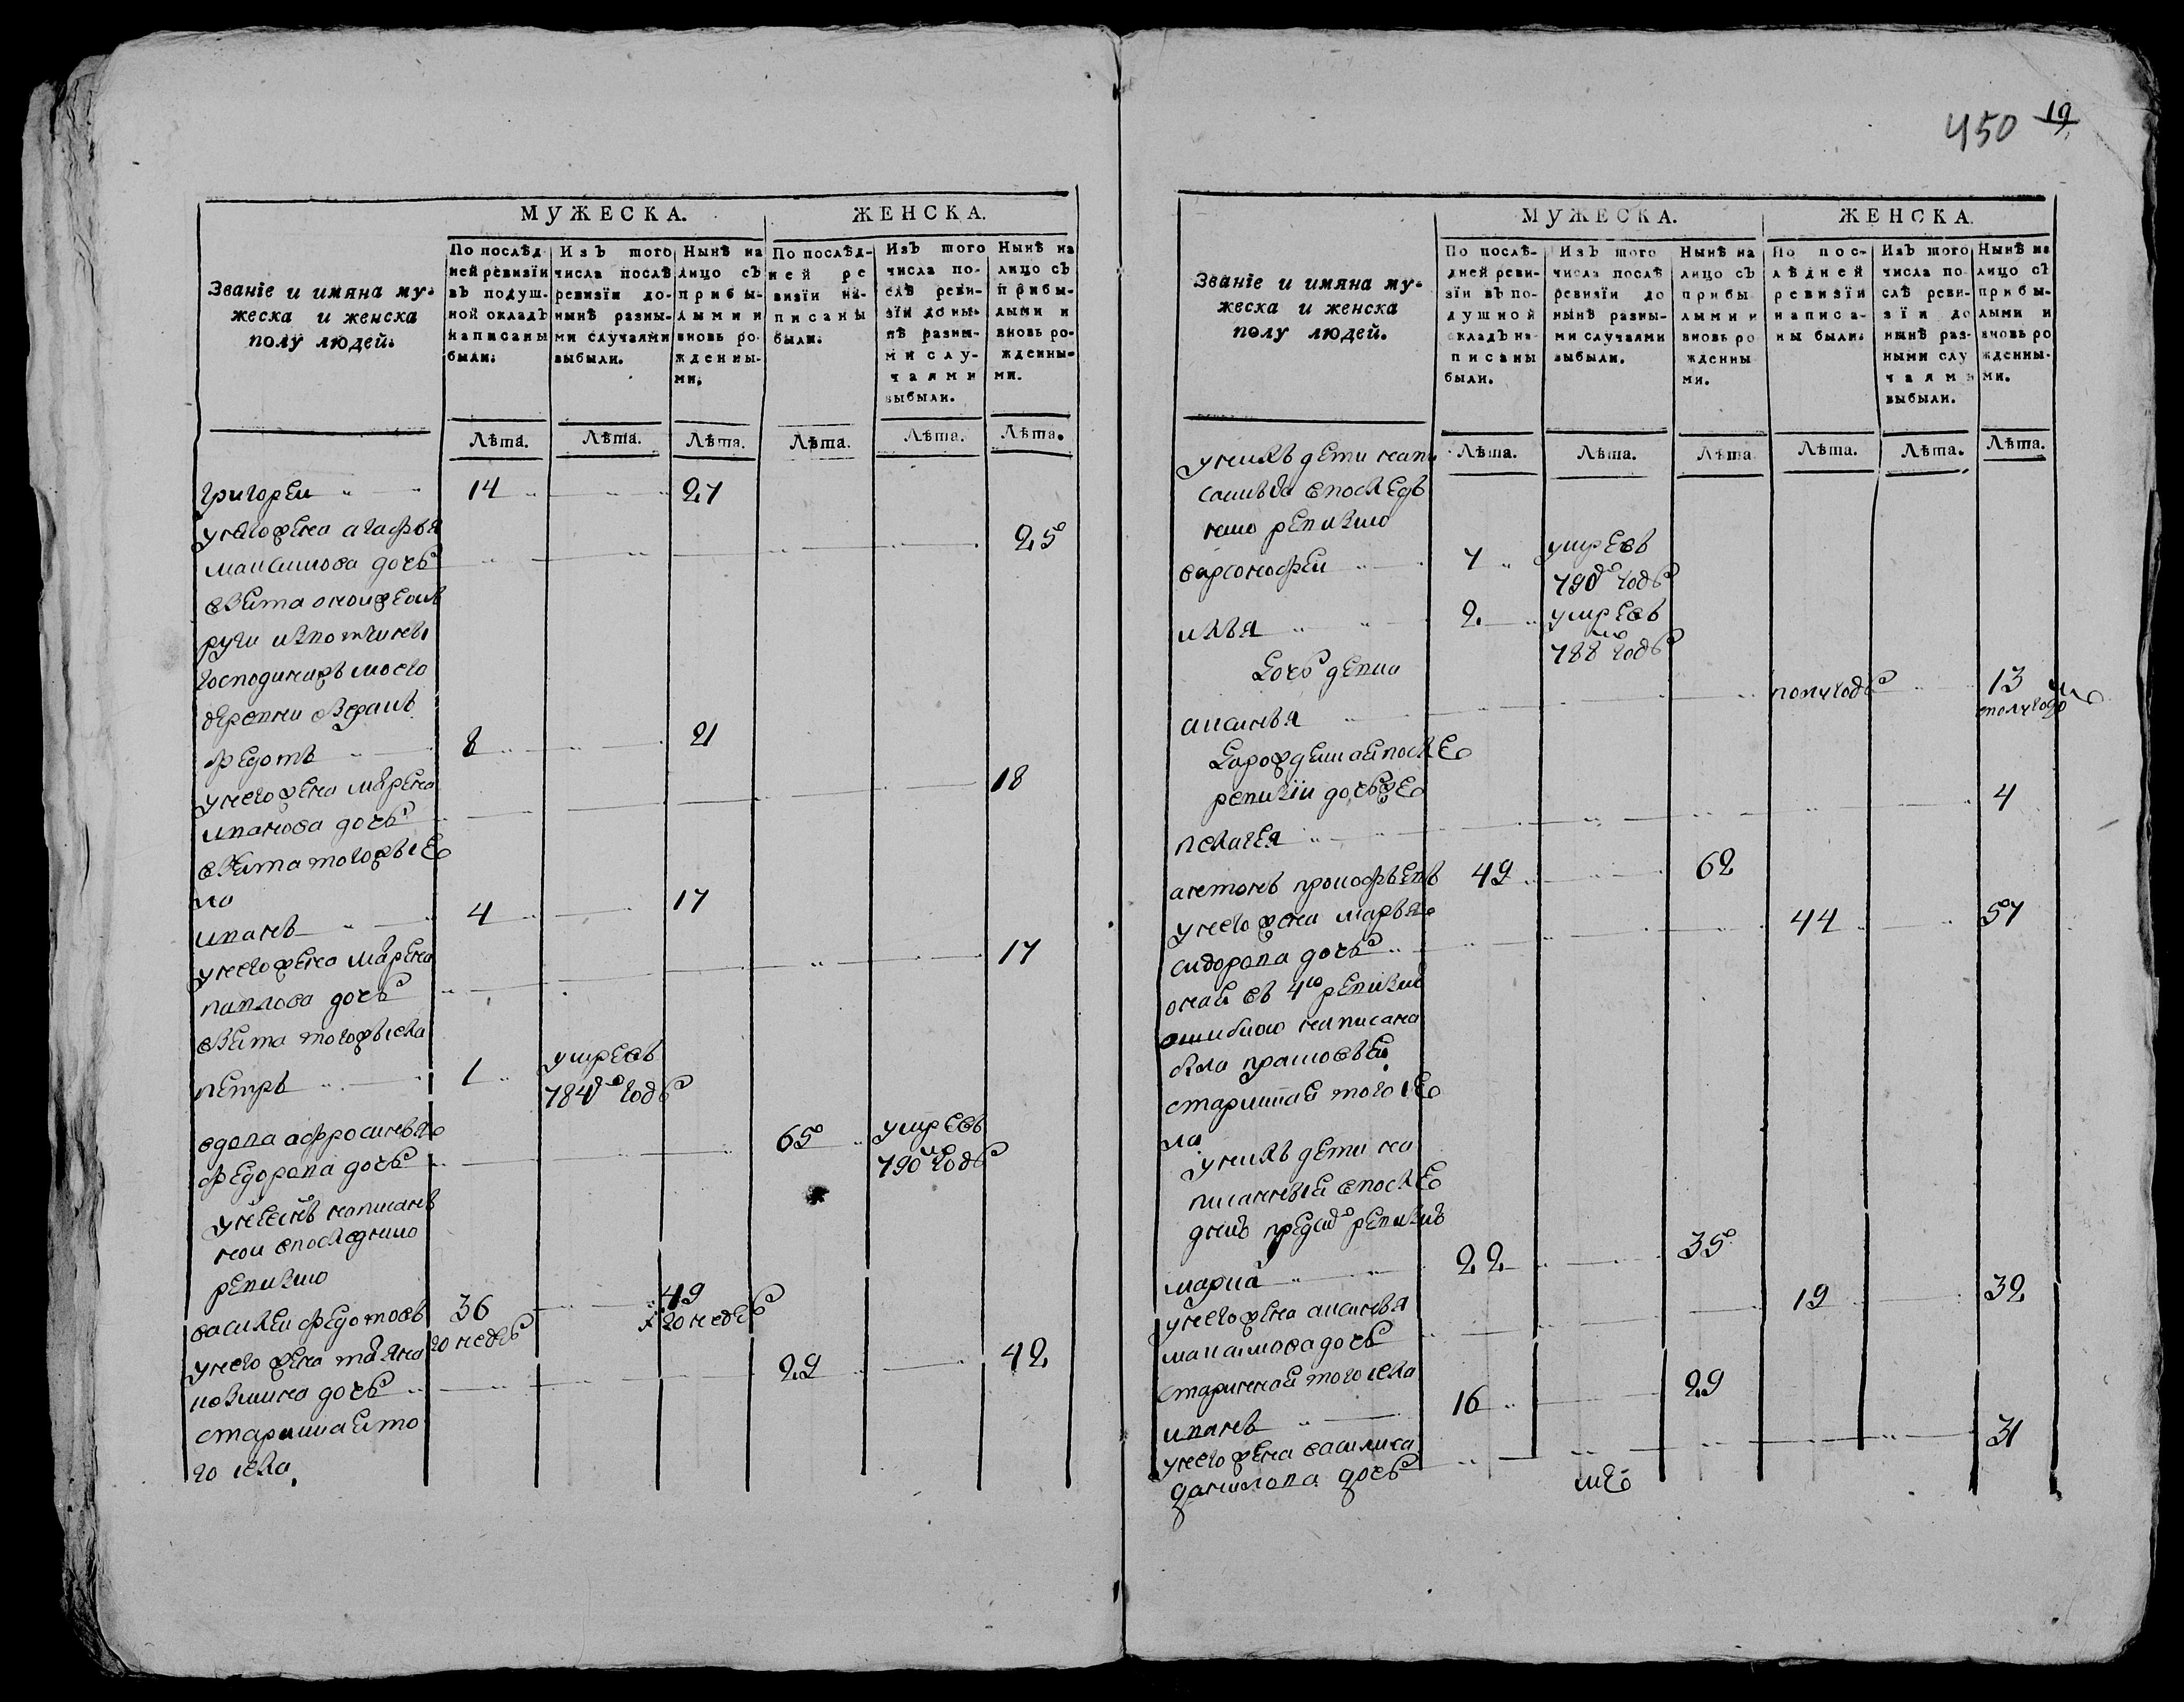 450 19
МУЖЕСКА. ЖЕНСКА.
Званіе и имяна мужеска и женска полу людей.
По послѣдней ревизїи въ подушной окладъ написаны были.
Изъ того числа послѣ ревизїи до нынѣ разными случаями выбыли.
Нынѣ на лицо съ прибылыми и вновь рожденными.
По послѣдней ревизїи написаны были.
Изъ того числа послѣ ревизїи до нынѣ разными случаями выбыли.
Нынѣ на лицо съ прибылыми и вновь рожденными.
Лѣта. Лѣта. Лѣта. Лѣта. Лѣта. Лѣта.
григореи 14 27
унего жена агафья
максимова дочь 25
взята оной
господина моего
деревни
федотъ 8 21
унего жена марена
иванова дочь 18
взята тогожъ се
ла
иванъ 4 17
унего жена марена
павлова дочь 17
взята тогожъ села
петръ 1 умревъ
784го годѣ
вдова афросинья
федорова дочь 65 умревъ
790м годѣ
написанъ
последнию
ревизию
василеи федотовъ 36 49
20 недель 20 недель
унего жена татяна
козмина дочь 29 42
стариннаи то
го села
МУЖЕСКА. ЖЕНСКА.
Званіе и имяна мужеска и женска полу людей.
По послѣдней ревизїи въ подушной окладъ написаны были.
Изъ того числа послѣ ревизїи до нынѣ разными случаями выбыли.
Нынѣ на лицо съ прибылыми и вновь рожденными.
По послѣдней ревизїи написаны были.
Изъ того числа послѣ ревизїи до нынѣ разными случаями выбыли.
Нынѣ на лицо съ прибылыми и вновь рожденными.
Лѣта. Лѣта. Лѣта. Лѣта. Лѣта. Лѣта.
унихъ дети напи
саныя впоследъ
нию ревизию
варсонофеи 7 умревъ
790 годѣ
илья 2 умревъ
788м годѣ
дочь
аксинья полугодѣ 13
с полугодом
рожденная после
ревизїи дочь же
пелагея 4
антонъ прокофьевъ 49 62
унего жена марья
сидорова дочь 44 57
оная въ 4ю ревизию
ошибкою написана
была прасковьеи
старинная того се
ла
унихъ дети на
писанныи впосле
днию пред ревизию
марка 22 35
унего жена аксинья
максимова дочь 19 32
старинная того села
иванъ 16 29
унего жена василиса
данилова дочь 31